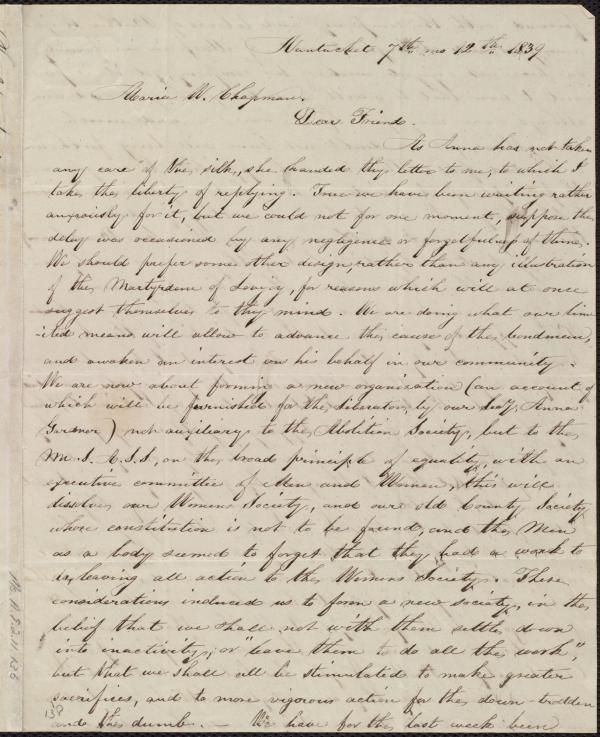 Nantucket 7th mo 12th 1839
Maria W. Chapman.
Dear Friend.
As Anna has not taken
any care of the silk, she handed thy letter to me, to which I
take the liberty of replying. True we have been waiting rather
anxiously for it, but we could not for one moment, suppose the
delay was occasioned by any negligence or forgetfulness of thine.
We should prefer some other design, rather than any illustration
of the Martyrdom of Lovejoy, for reasons which will at once
suggest themselves to thy mind. We are doing what our lim
-ited means will allow to advance the cause of the bondman,
and awaken an interest on his behalf in our community.
We are now about forming a new organization (an account of
which will be furnished for the Liberator, by our Secy, Anna
Gardner) not auxiliary to the Abolition Society, but to the
M. S. A. S. S, on the broad principle of equality, with an
executive committee of Men and Women, this will
dissolve our Womens Society, and our old County Society
whose constitution is not to be found, and the Men
as a body seemed to forget that they had a work to
do, leaving all action to the Womens Society. These
considerations induced us to form a new society, in the
belief that we shall not with them settle down
into inactivity, or "leave them to do all the work",
but that we shall all be stimulated to make greater
sacrifices, and to more vigorous action for the down-trodden
and the dumb. — We have for the last week been
138